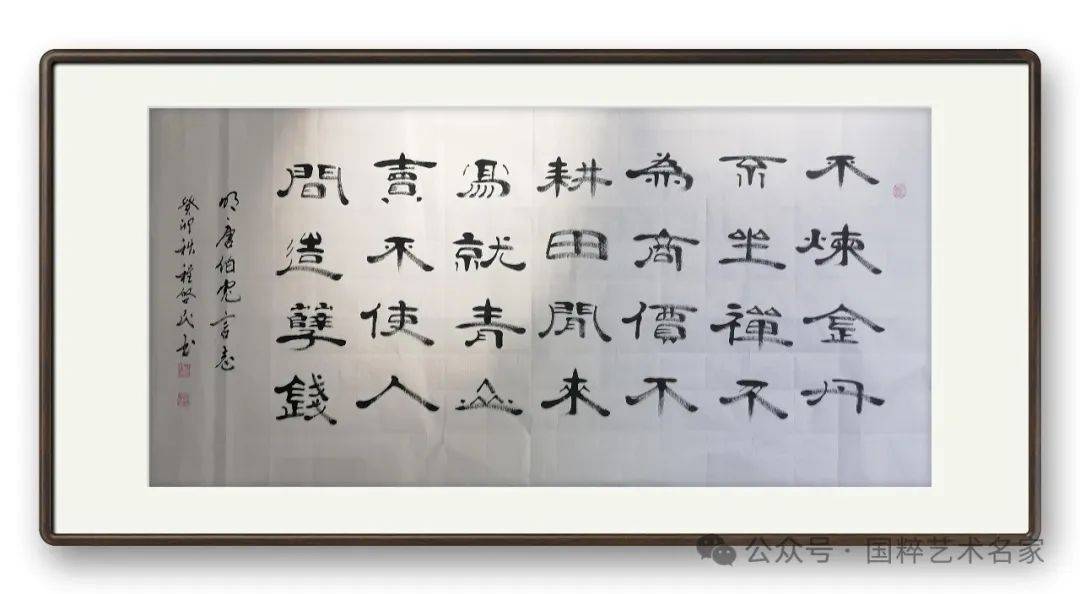 不煉金丹
不坐禪不
為商價不
耕田閒來
寫就青山
賣不使人
間造孽錢
明唐伯虎言志
癸卯秋程啓民书
公众号·国粹艺术名家